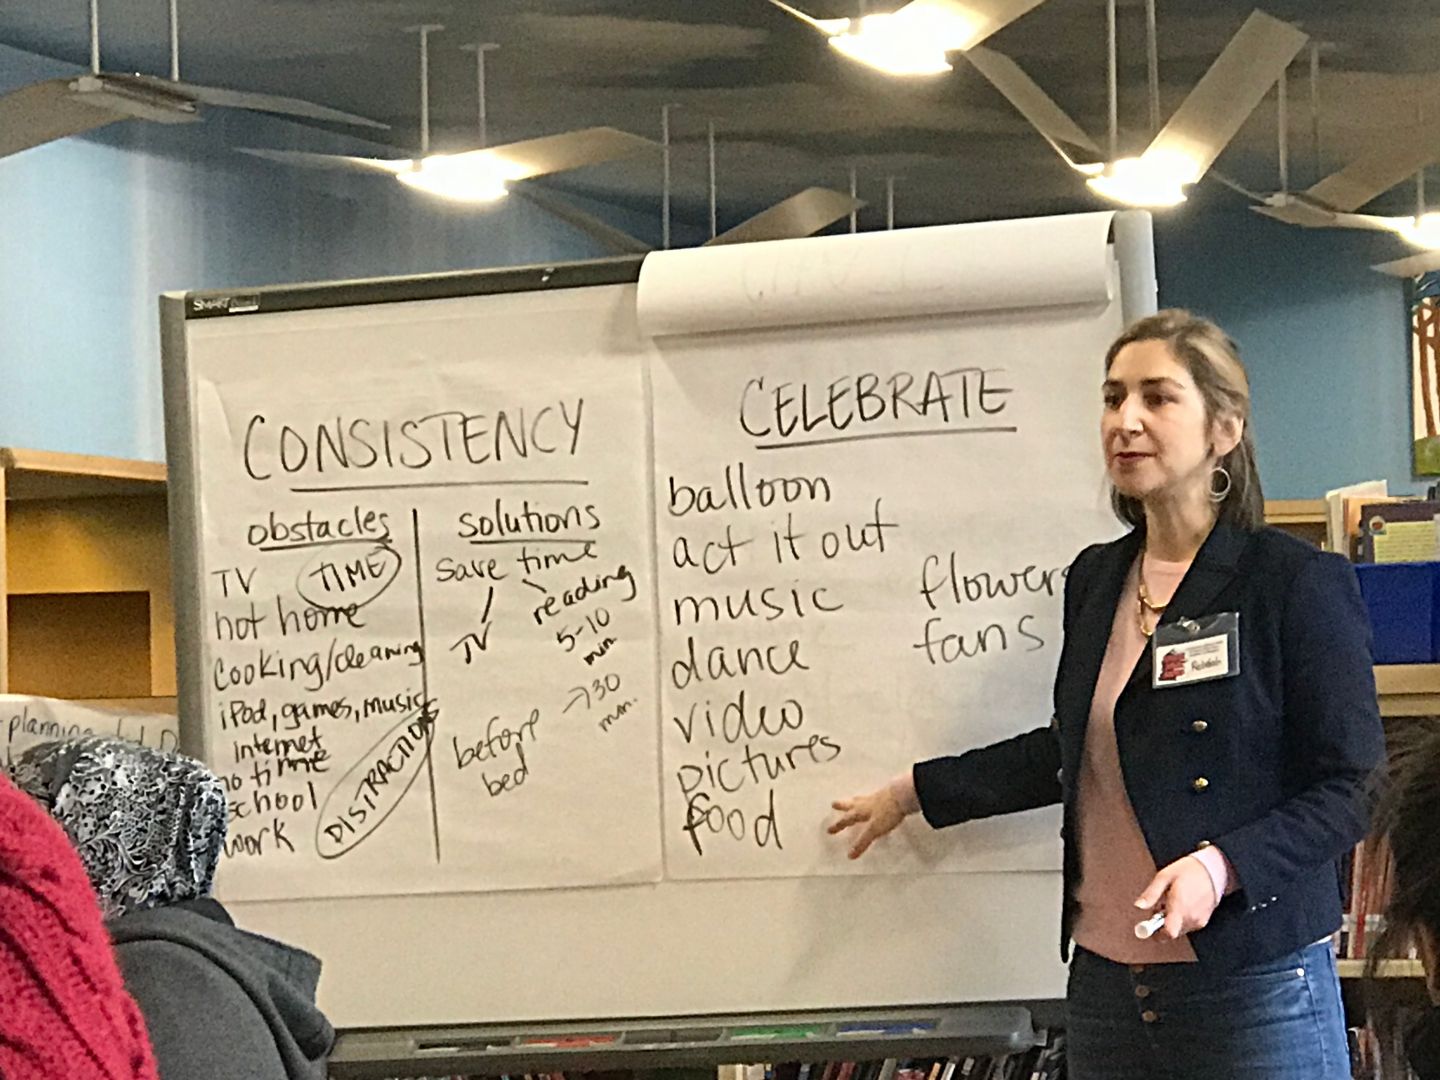 SMART
CONSISTENCY
obstacles
TV TIME
not home
cooking/cleaning
iPod, games, music
internet
no time
school
work
DISTRACTIONS
solutions
save time
TV
reading
5-10
min.
→30
min.
before
bed
CELEBRATE
balloon
act it out
music
dance
video
pictures
food
flowers
fans
planning